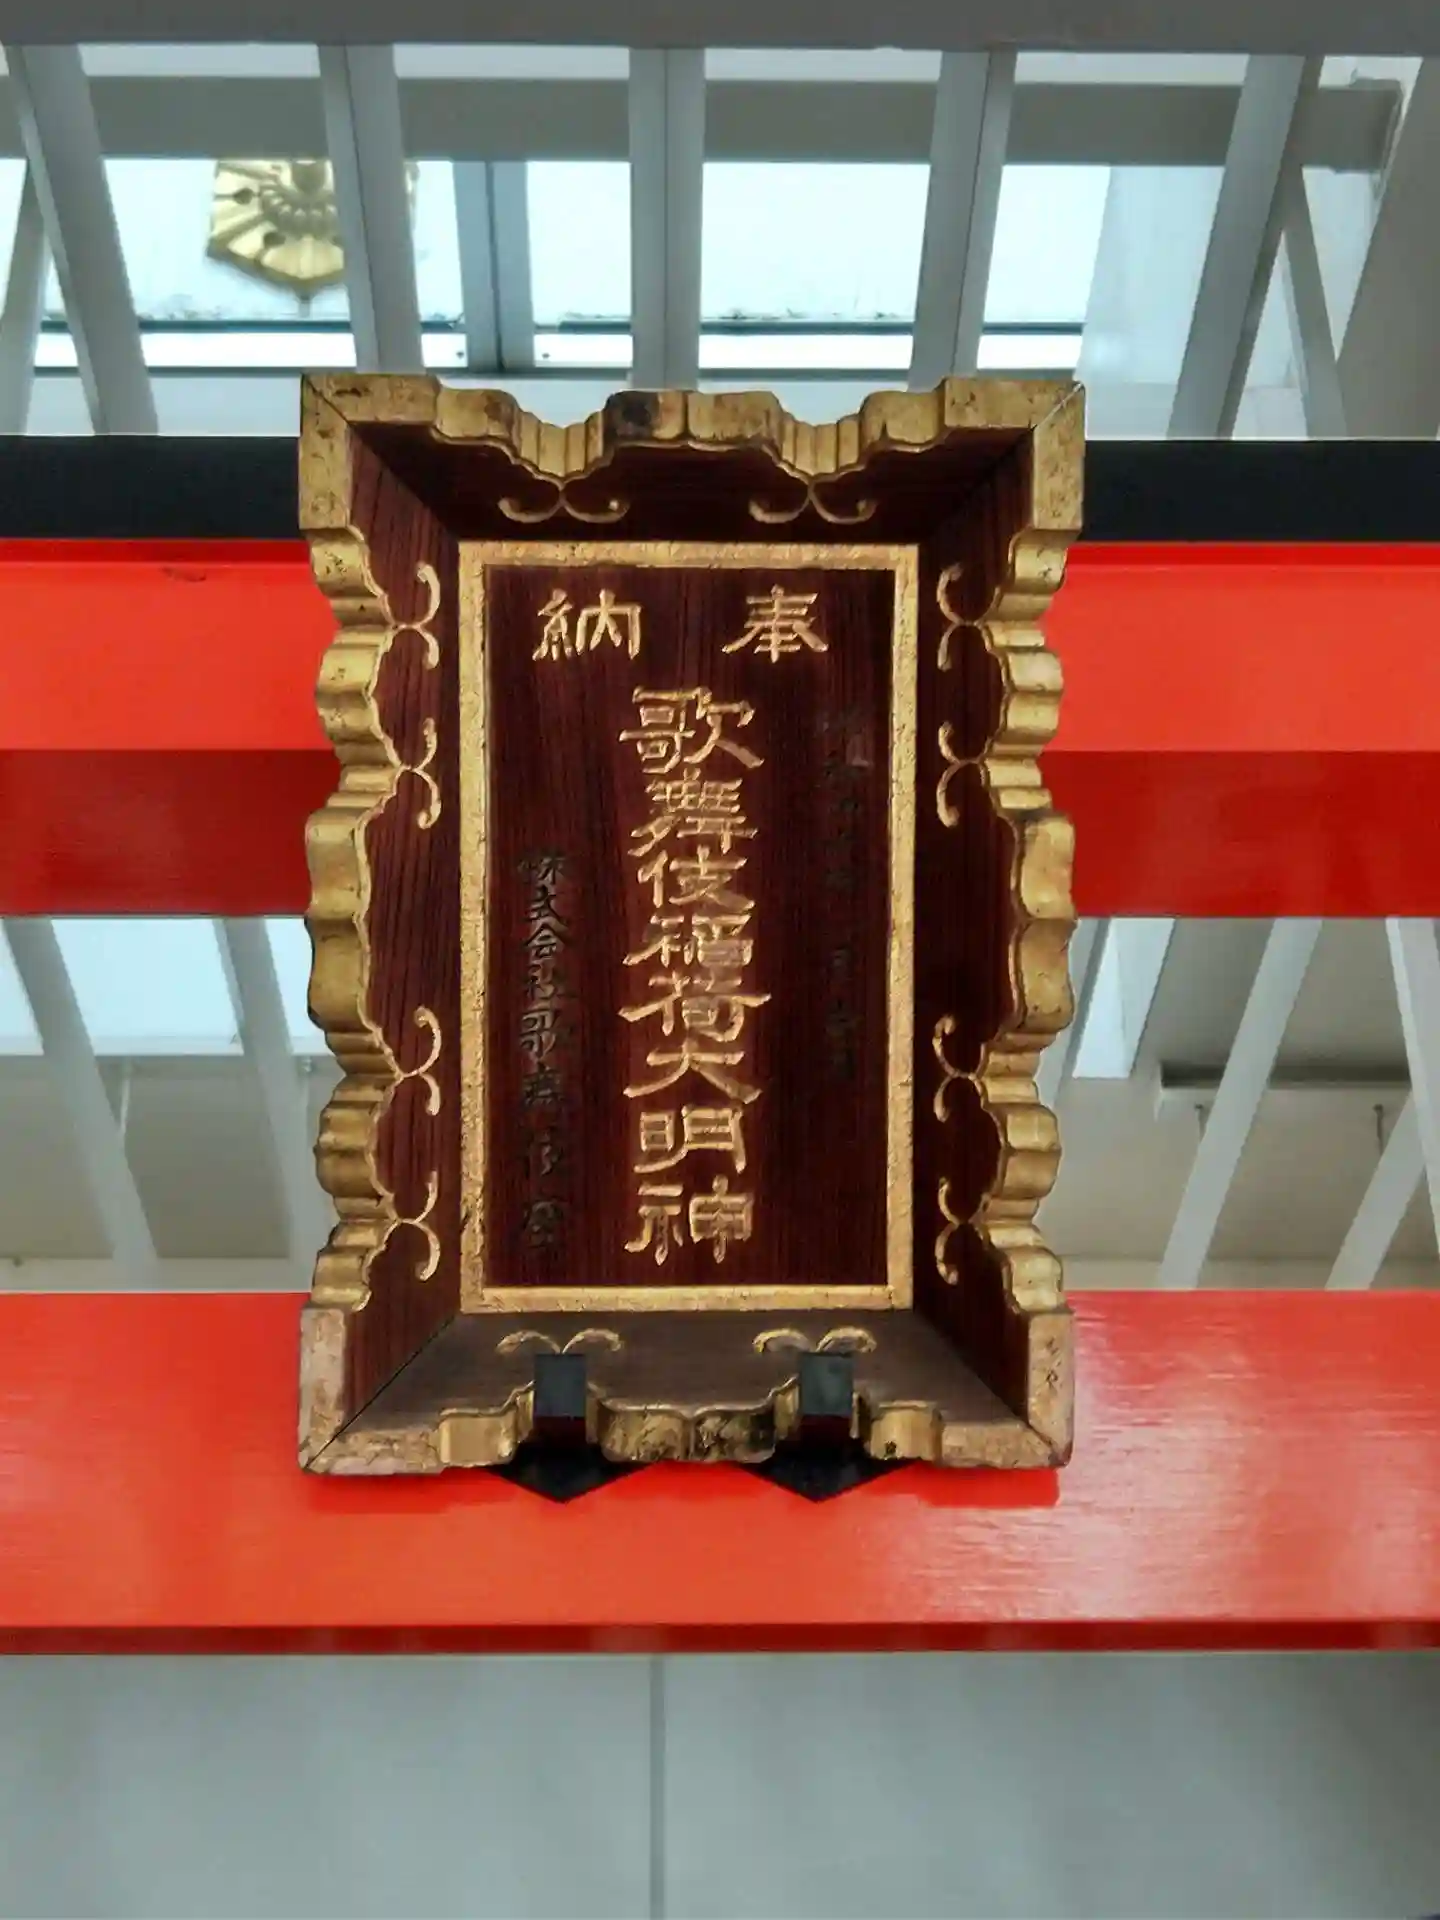 奉納
歌舞伎稲荷大明神
株式会社歌舞伎座